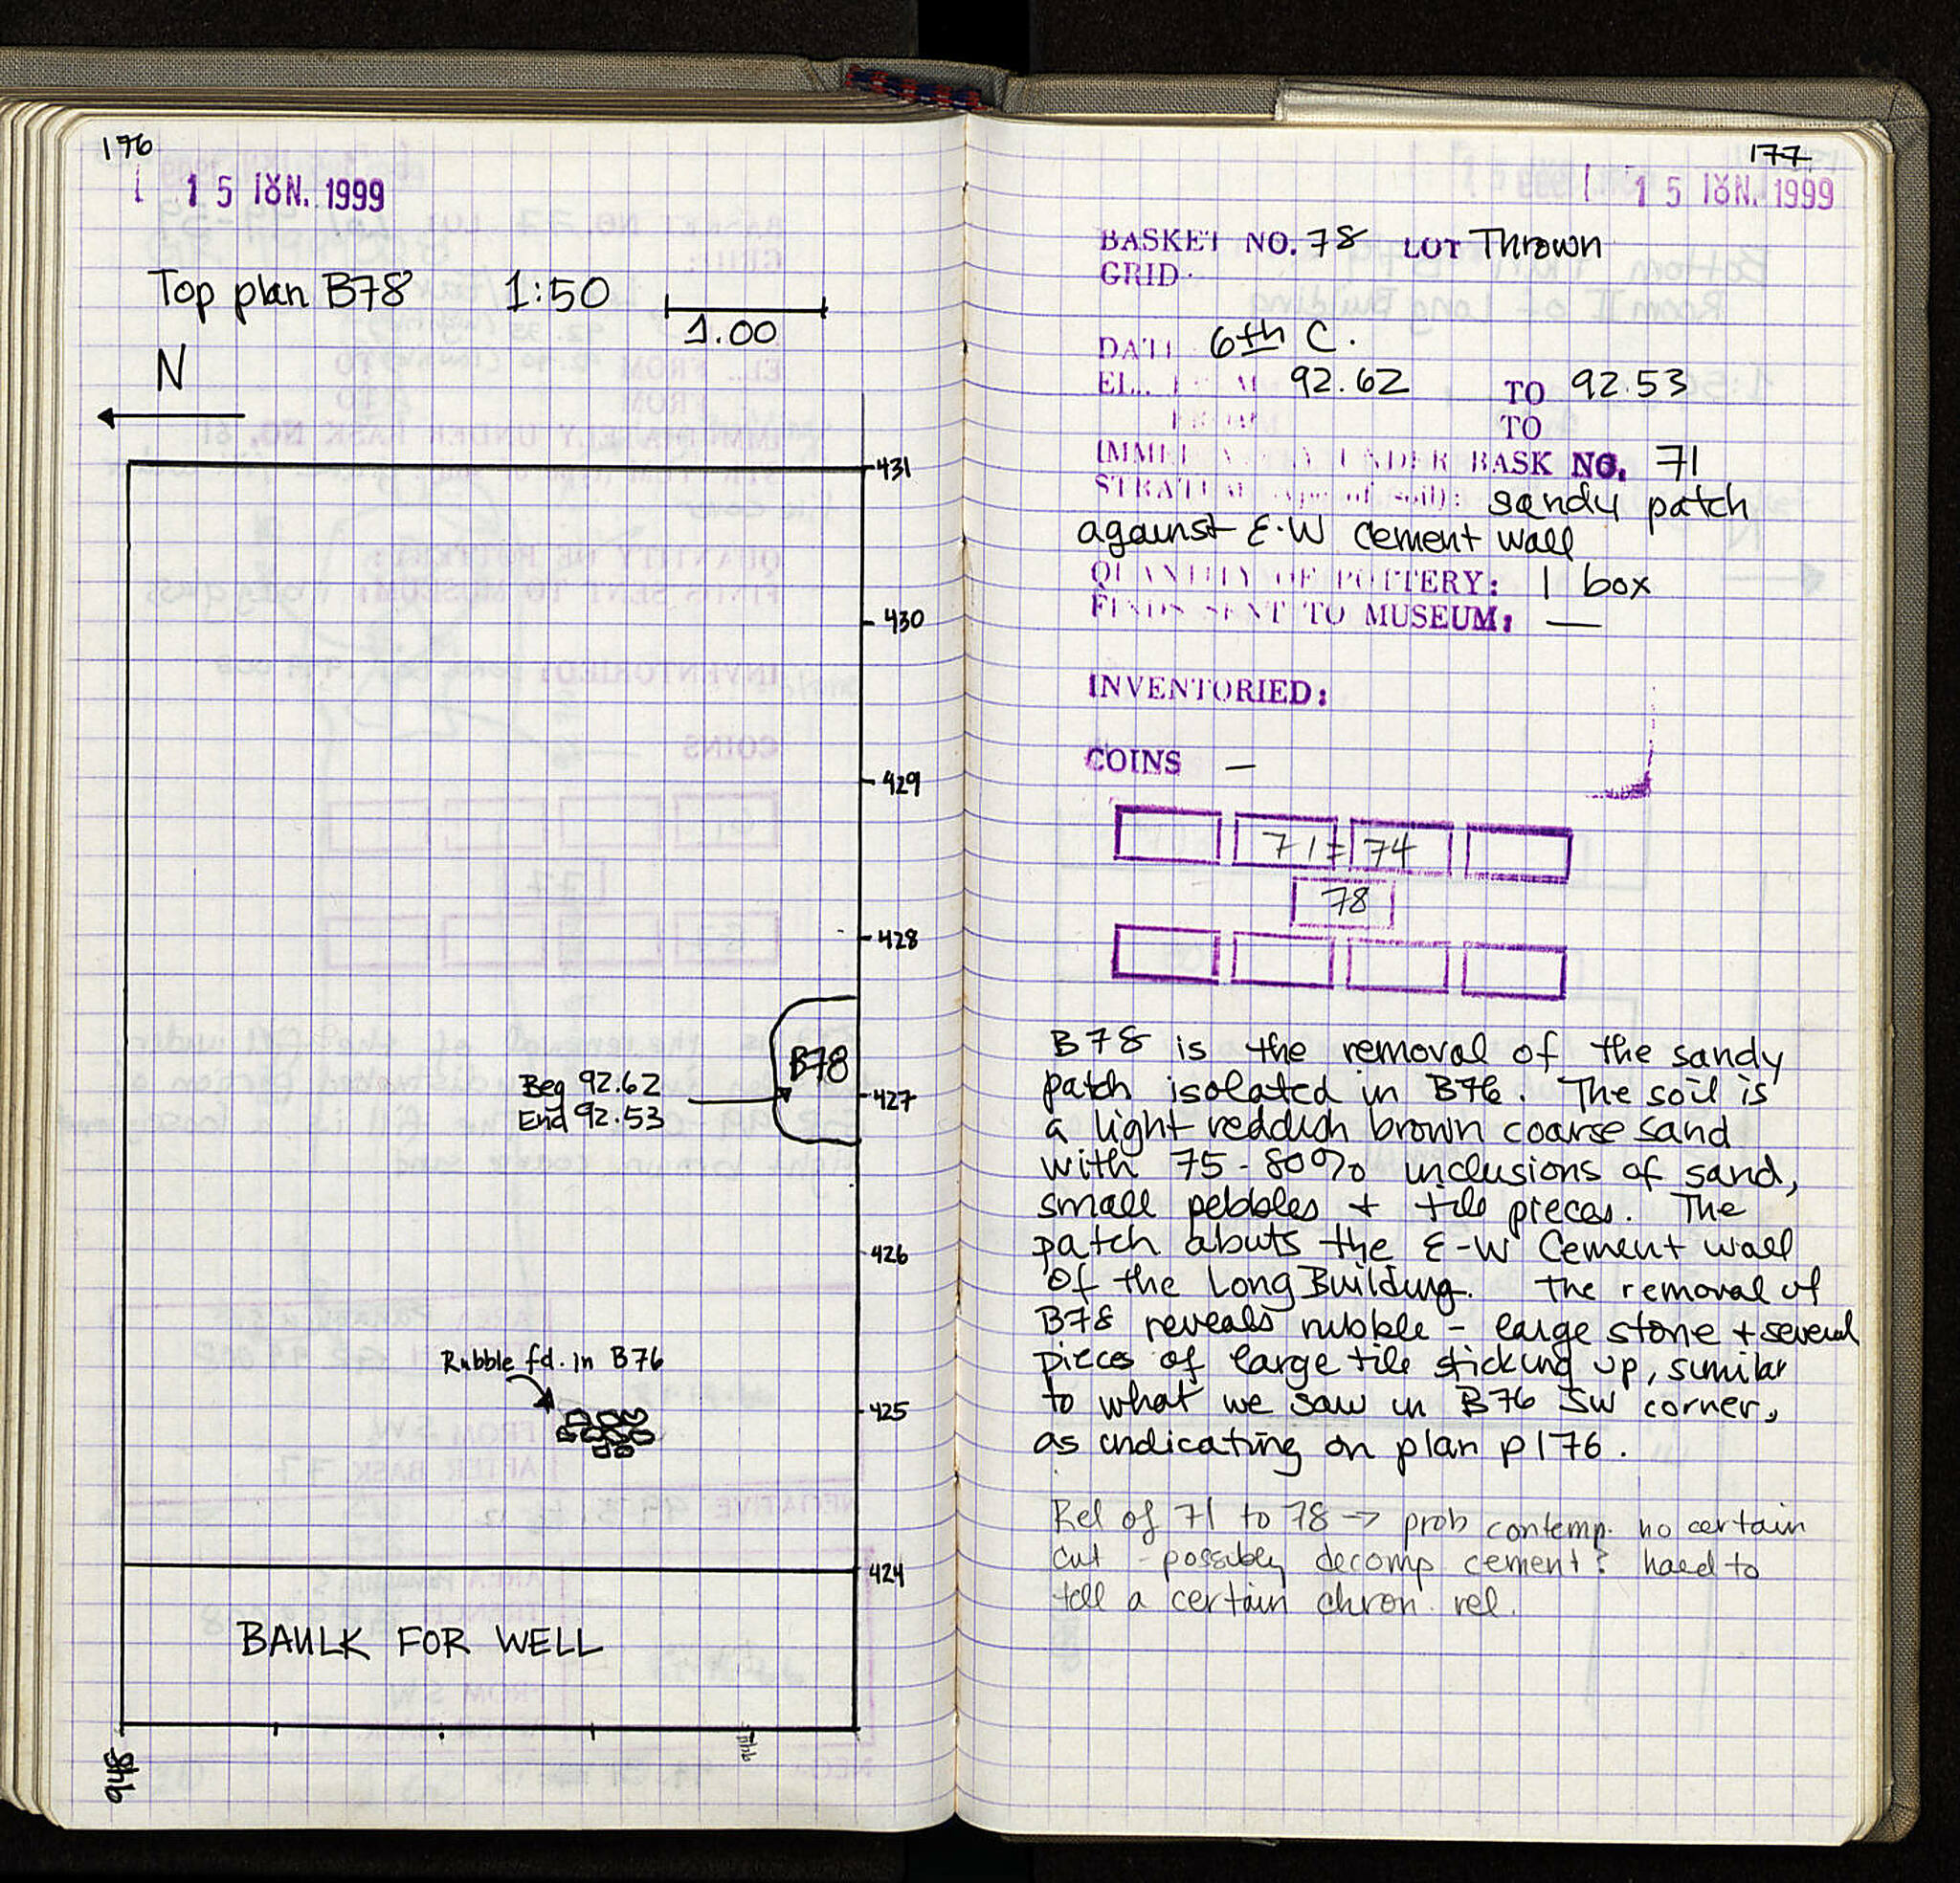 176
15 ΙΟΥΝ. 1999
Top plan B78 1:50
1.00
N
431
430
429
428
B78
Beg 92.62
End 92.53
427
426
Rubble fd. in B76
425
424
BAULK FOR WELL
948
177
15 ΙΟΥΝ. 1999
BASKET NO. 78 LOT Thrown
GRID
DATE 6th C.
EL.. FROM 92.62 TO 92.53
FROM TO
IMMEDIATELY UNDER BASK NO. 71
STRATUM (type of soil): sandy patch
against E-W cement wall
QUANTITY OF POTTERY: 1 box
FINDS SENT TO MUSEUM: —
INVENTORIED:
COINS —
71 = 74
78
B78 is the removal of the sandy
patch isolated in B76. The soil is
a light reddish brown coarse sand
with 75-80% inclusions of sand,
small pebbles + tile pieces. The
patch abuts the E-W Cement wall
of the Long Building. The removal of
B78 reveals rubble - large stone + several
pieces of large tile sticking up, similar
to what we saw in B76 SW corner,
as indicating on plan p176.
Rel of 71 to 78 → prob contemp. no certain
cut - possibly decomp cement? hard to
tell a certain chron. rel.